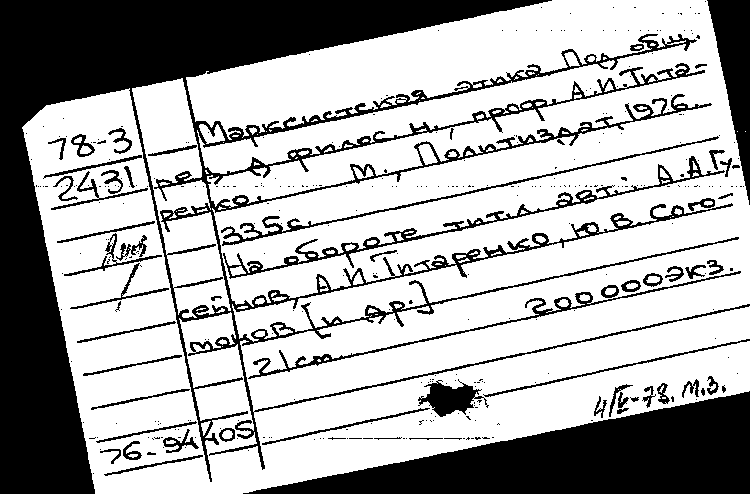 78-3
2431
Марксистская этика Под общ.
ред. д филос. н., проф. А.И.Тита-
ренко. М., Политиздат, 1976.
335с.
На обороте тит.л авт.: А.А.Гу-
сейнов, А.И.Титаренко, Ю.В.Сого-
монов [и др.]
21см. 200000экз.
76-94405
4/V-78. М.З.